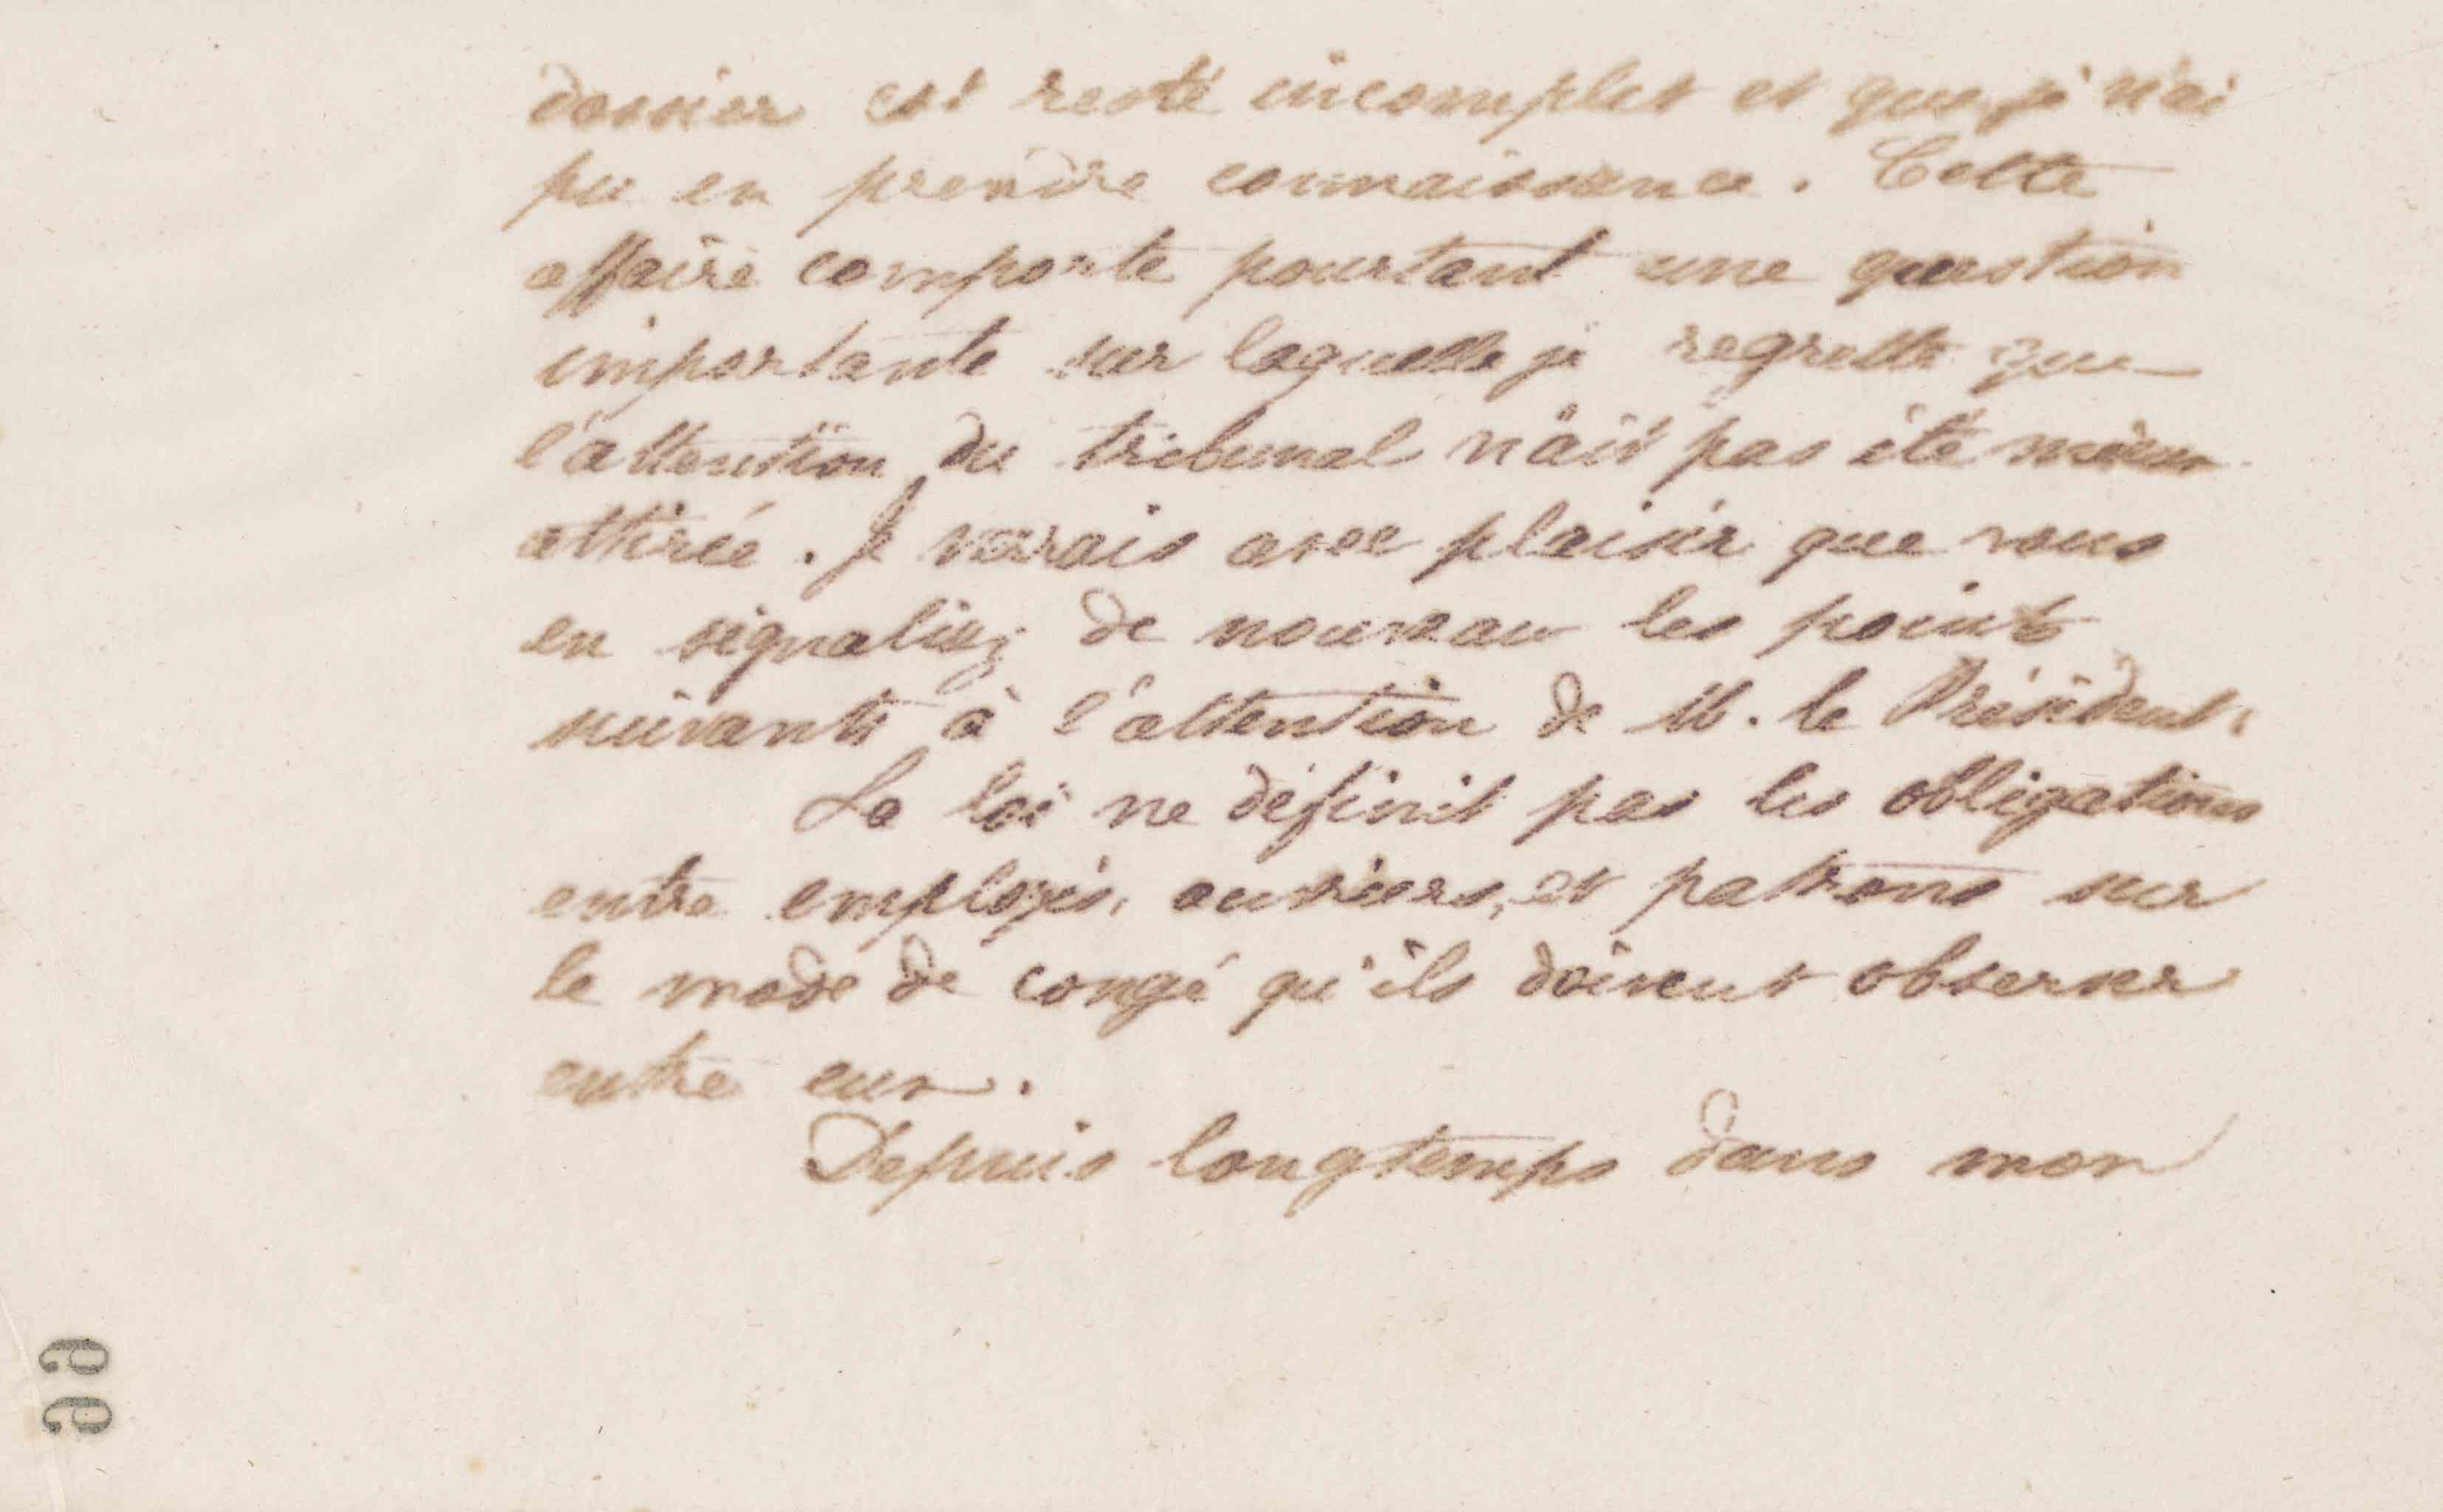 dossier est resté incomplet et que je n'ai
pu en prendre connaissance. Cette
affaire comporte pourtant une question
importante sur laquelle je regrette que
l'attention du tribunal n'ait pas été mieux
attirée. Je verrais avec plaisir que vous
en signaliez de nouveau les points
suivants à l'attention de M. le Président.
La loi ne définit pas les obligations
entre employés, ouvriers, et patrons sur
le mode de congé qu'ils doivent observer
entre eux.
Depuis longtemps dans mon
99